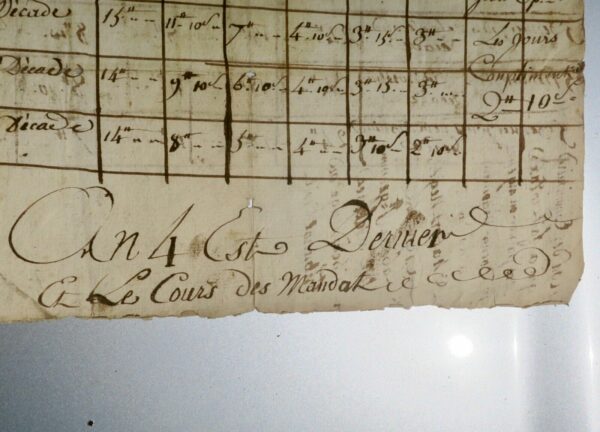 Décade 15ᵗᵗ 11ᵗᵗ 10ˢ 7ᵗᵗ 4ᵗᵗ 10ˢ 3ᵗᵗ 15ˢ 3ᵗᵗ Les Jours
Décade 14ᵗᵗ 9ᵗᵗ 10ˢ 6ᵗᵗ 10ˢ 4ᵗᵗ 10ˢ 3ᵗᵗ 15ˢ 3ᵗᵗ
2ᵗᵗ 10ˢ
Décade 14ᵗᵗ 8ᵗᵗ 5ᵗᵗ 4ᵗᵗ 3ᵗᵗ 10ˢ 2ᵗᵗ 10ˢ
An 4 Est Dernier
Et Le Cours des Mandat